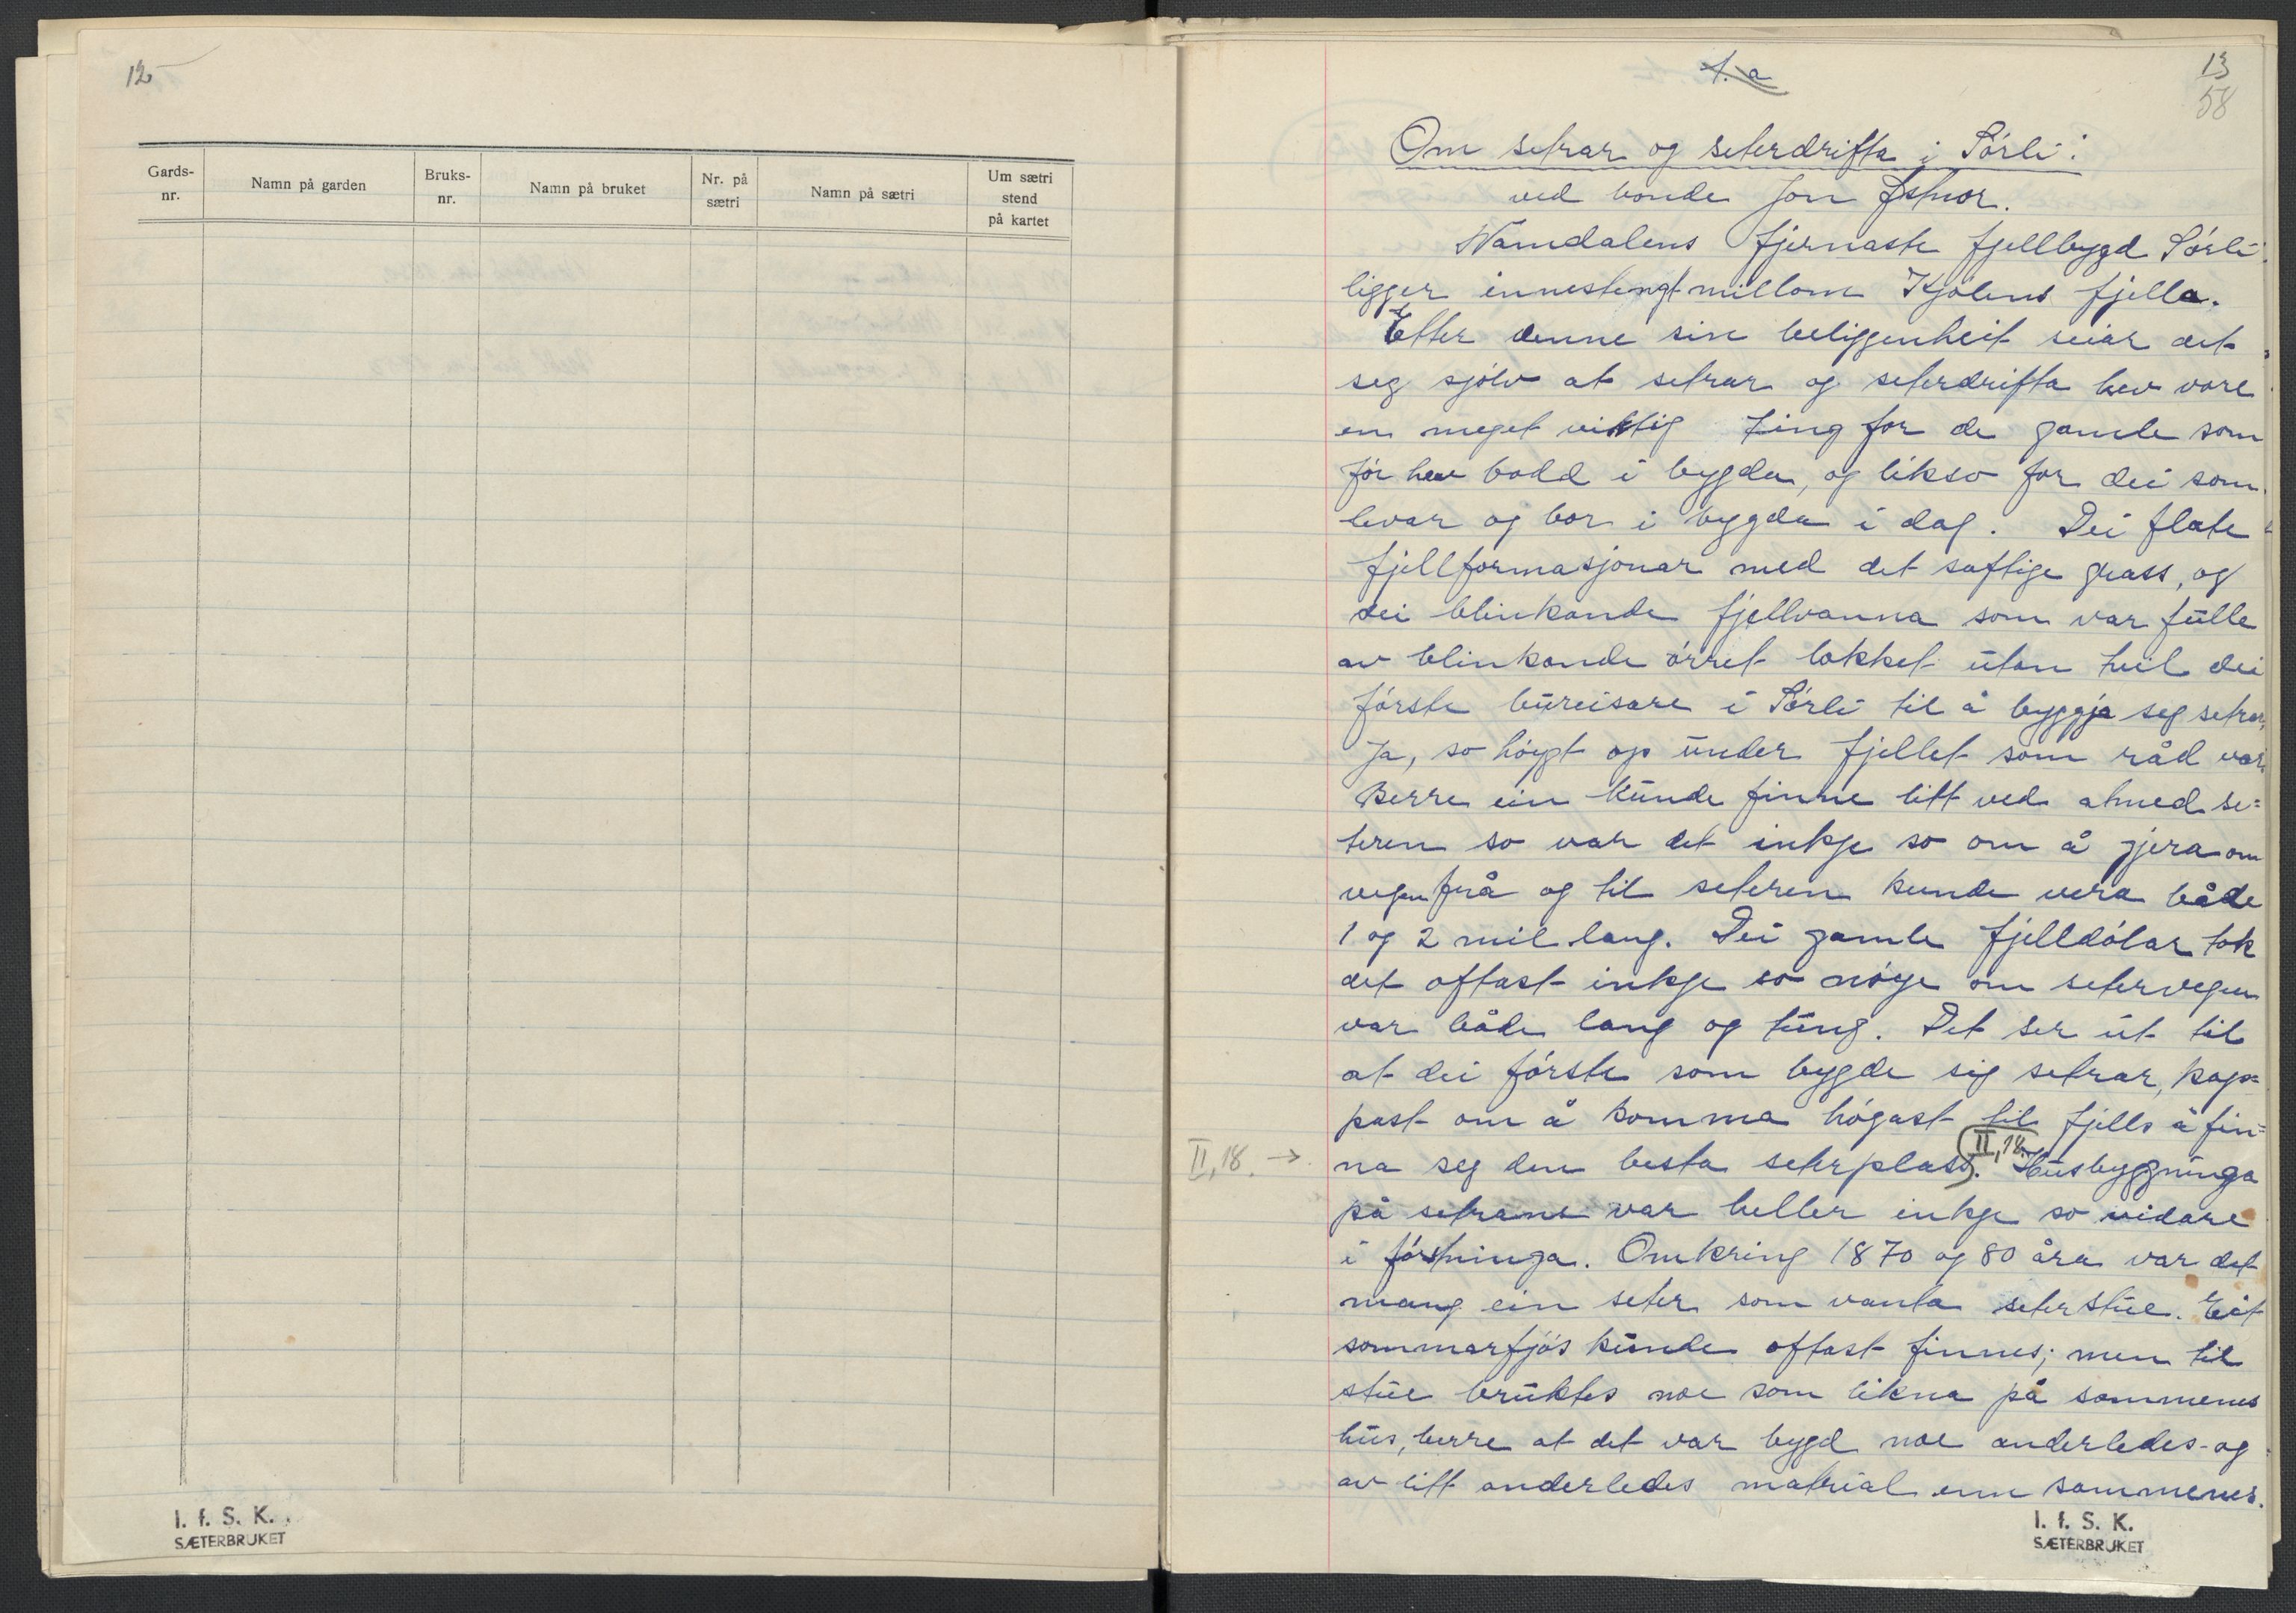 12
Gards-
nr.
Namn på garden
Bruks-
nr.
Namn på bruket
Nr. på
sætri
Namn på sætri
Um sætri
stend
på kartet
I. f. S. K.
SÆTERBRUKET
1.a
13
58
Om setrar og seterdrifta i Sórli:
ved bonde Jon
Namdalens fjernaste fjellbygd Sórli
ligger innestengt millom Kjólens fjella.
Etter denne sin beliggenheit seiar det
seg sjólv at setrar og seterdrifta hev vore
en meget viktig ting for de gamle som
fór hev bodd i bygda, og likso for dei som
levar og bor i bygda i dag. Dei flate
fjellformasjonar med det saftige grass, og
dei blinkande fjellvanna som var fulle
av blinkande órret lokket utan tvil dei
fórste bureisare i Sórli til å byggja seg setrar,
Ja, so hóygt op under fjellet som råd var.
Berre ein kunde finne litt ved atmed se=
teren so var det inkje so om å gjera om
vegen frå og til seteren kunde vera både
1 og 2 mil lang. Dei gamle fjelldólar tok
det oftast inkje so nóye om setervegen
var både lang og tung. Det ser ut til
at dei fórste som bygde sig setrar, kap=
past om å komma hógast til fjells å fin=
II,18. →
na seg den besta seterplass. II,18. Husbygginga
på setrane var heller inkje so vidare
i fórstninga. Omkring 1870 og 80 åra var det
mang ein seter som vanta seterstue. Eit
sommarfjós kunde oftast finnes; men til
stue bruktes noe som likna på sammenes
hus, berre at det var bygd noe anderledes og
av litt anderledes matrial enn sammenes.
I. f. S. K.
SÆTERBRUKET